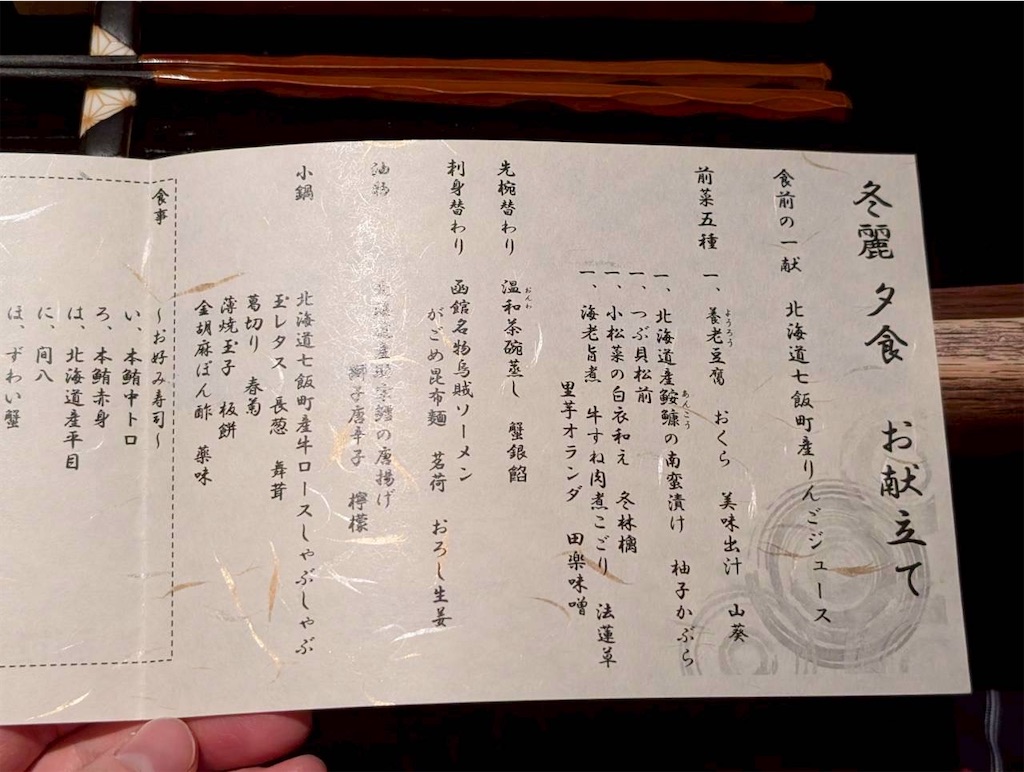 冬麗 夕食 お献立て
食前の一献 北海道七飯町産りんごジュース
前菜五種 一、養老豆腐 おくら 美味出汁 山葵
ようろう
一、北海道産鮟鱇の南蛮漬け 柚子かぶら
あんこう
一、つぶ貝松前
一、小松菜の白衣和え 冬林檎
一、海老旨煮 牛すね肉煮こごり 法蓮草
里芋オランダ 田楽味噌
先椀替わり 温和茶碗蒸し 蟹銀餡
おんわ
刺身替わり 函館名物烏賊ソーメン
がごめ昆布麺 茗荷 おろし生姜
油物 北海道産真鱈の唐揚げ
獅子唐辛子 檸檬
小鍋 北海道七飯町産牛ロースしゃぶしゃぶ
玉レタス 長葱 舞茸
葛切り 春菊
薄焼玉子 板餅
金胡麻ぽん酢 薬味
食事 〜お好み寿司〜
い、本鮪中トロ
ろ、本鮪赤身
は、北海道産平目
に、間八
ほ、ずわい蟹